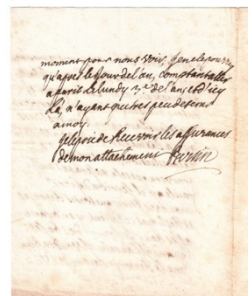 moment pour nous voir. Je ne le pouray
qu'apres le jour de l'an, comptant aller
a paris le lundy 2e de l'an, et d'icy
la, n'ayant qu'tres peu de tems
a moy.
Je le prie de recevoir les assurances
de mon attachement